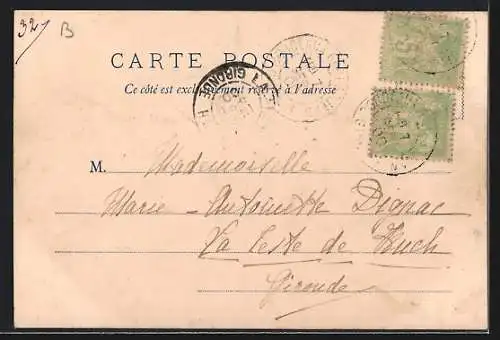 327 B
CARTE POSTALE
Ce côté est exclusivement réservé à l'adresse
GIRONDE
M. Mademoiselle
Marie-Antoinette Dignac
La Teste de Buch
Gironde